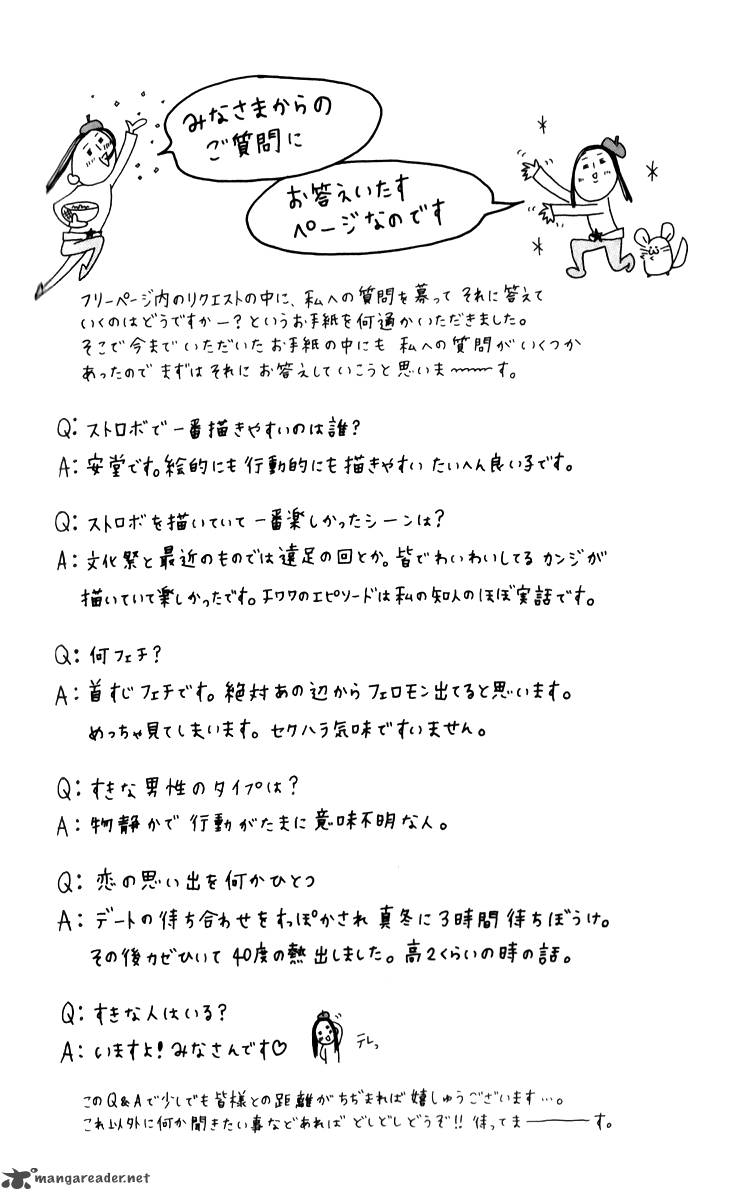 みなさまからの
ご質問に
お答えいたす
ページなのです
フリーページ内のリクエストの中に、私への質問を募って それに答えて
いくのはどうですかー？というお手紙を何通かいただきました。
そこで今まで いただいた お手紙の中にも 私への質問が いくつか
あったので まずは それに お答えしていこうと思いま〜〜〜す。
Q: ストロボで 一番描きやすいのは誰？
A: 安堂です。絵的にも 行動的にも 描きやすい たいへん良い子です。
Q: ストロボを描いていて 一番楽しかったシーンは？
A: 文化祭と最近のものでは遠足の回とか。皆でわいわいしてる カンジが
描いていて楽しかったです。チワワのエピソードは私の知人のほぼ実話です。
Q: 何フェチ？
A: 首すじフェチです。絶対あの辺から フェロモン出てると思います。
めっちゃ見てしまいます。セクハラ気味ですいません。
Q: すきな男性のタイプは？
A: 物静かで 行動がたまに 意味不明な人。
Q: 恋の思い出を何かひとつ
A: デートの待ち合わせをすっぽかされ 真冬に3時間 待ちぼうけ。
その後カゼひいて 40度の熱出しました。高2くらいの時の話。
Q: すきな人はいる？
A: いますよ！みなさんです♡
テレっ
このQ&Aで少しでも皆様との距離がちぢまれば嬉しゅうございます…。
これ以外に何か聞きたい事などあれば どしどしどうぞ!! 待ってま―――す。
mangareader.net